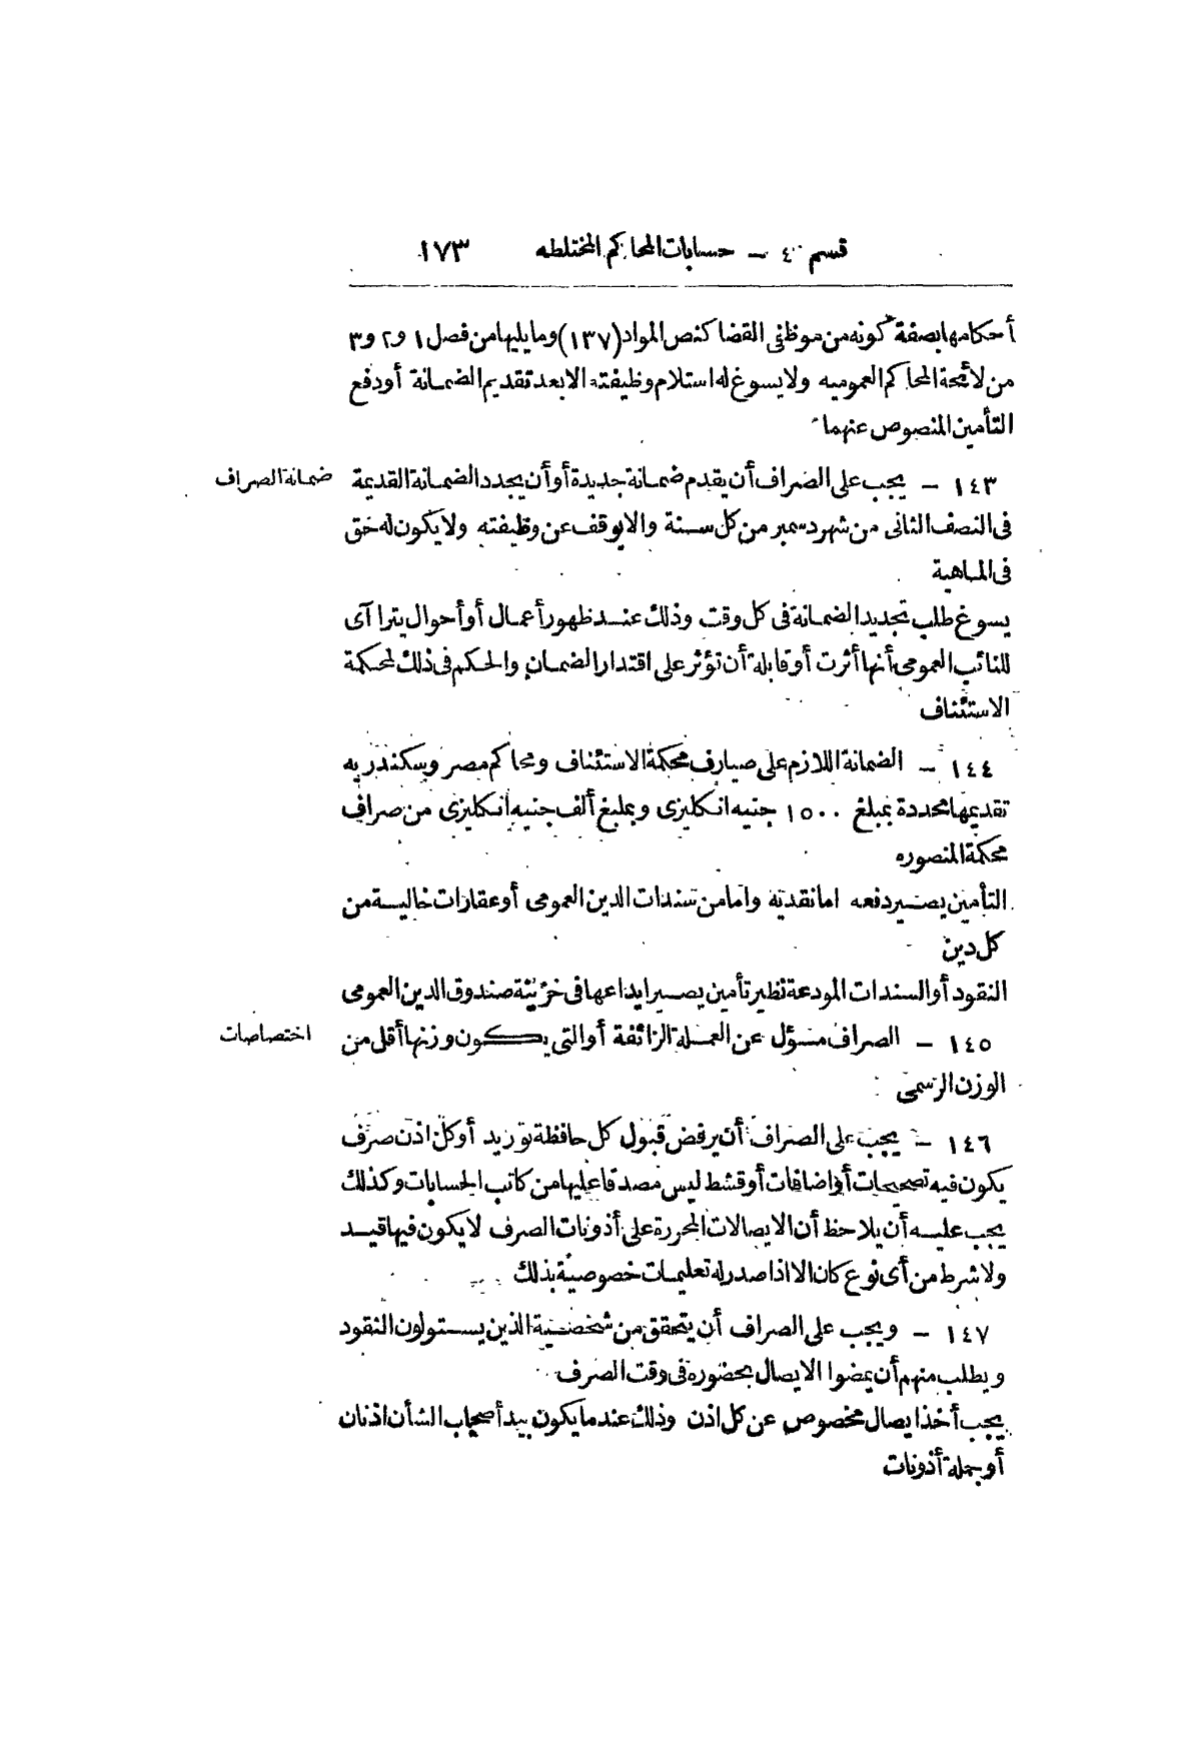 قسم ٤ – حسابات المحاكم المختلطه ١٧٣
أحكامها بصفة كونه من موظفى القضا كنص المواد (١٣٧) وما يليها من فصل ١ و٢ و٣
من لائحة المحاكم العموميه ولا يسوغ له استلام وظيفته الا بعد تقديم الضمانة أو دفع
التأمين المنصوص عنهما
ضمانة الصراف
١٤٣ – يجب على الصراف أن يقدم ضمانة جديدة أو أن يجدد الضمانة القديمة
فى النصف الثانى من شهر دسمبر من كل سنة والا يوقف عن وظيفته ولا يكون له حق
فى الماهية
يسوغ طلب تجديد الضمانة فى كل وقت وذلك عند ظهور أعمال أو أحوال يترا آى
للنائب العمومى أنها أثرت أو قابلة أن تؤثر على اقتدار الضمان والحكم فى ذلك لمحكمة
الاستئناف
١٤٤ – الضمانة اللازم على صيارف محكمة الاستئناف ومحاكم مصر وسكندريه
تقديمها محددة بمبلغ ١٥٠٠ جنيه انكليزى وبملبغ ألف جنيه انكليزى من صراف
محكمة المنصوره
التأمين يصير دفعه اما نقدية واما من سندات الدين العمومى أو عقارات خالية من
كل دين
النقود أو السندات المودعة نظير تأمين يصير ايداعها فى خزينة صندوق الدين العمومى
اختصاصات
١٤٥ – الصراف مسؤل عن العملة الزائفة أو التى يكون وزنها أقل من
الوزن الرسمى
١٤٦ – يجب على الصراف أن يرفض قبول كل حافظة توريد أو كل اذن صرف
يكون فيه تصحيحات أو اضافات أو قشط ليس مصدقا عليها من كاتب الحسابات وكذلك
يجب عليه أن يلاحظ أن الايصالات المحررة على أذونات الصرف لا يكون فيها قيد
ولا شرط من أى نوع كان الا اذا صدر له تعليمات خصوصية بذلك
١٤٧ – ويجب على الصراف أن يتحقق من شخصية الذين يستولون النقود
ويطلب منهم أن يمضوا الايصال بحضوره فى وقت الصرف
يجب أخذ ايصال مخصوص عن كل اذن وذلك عندما يكون بيد أصحاب الشأن اذنان
أو جملة أذونات